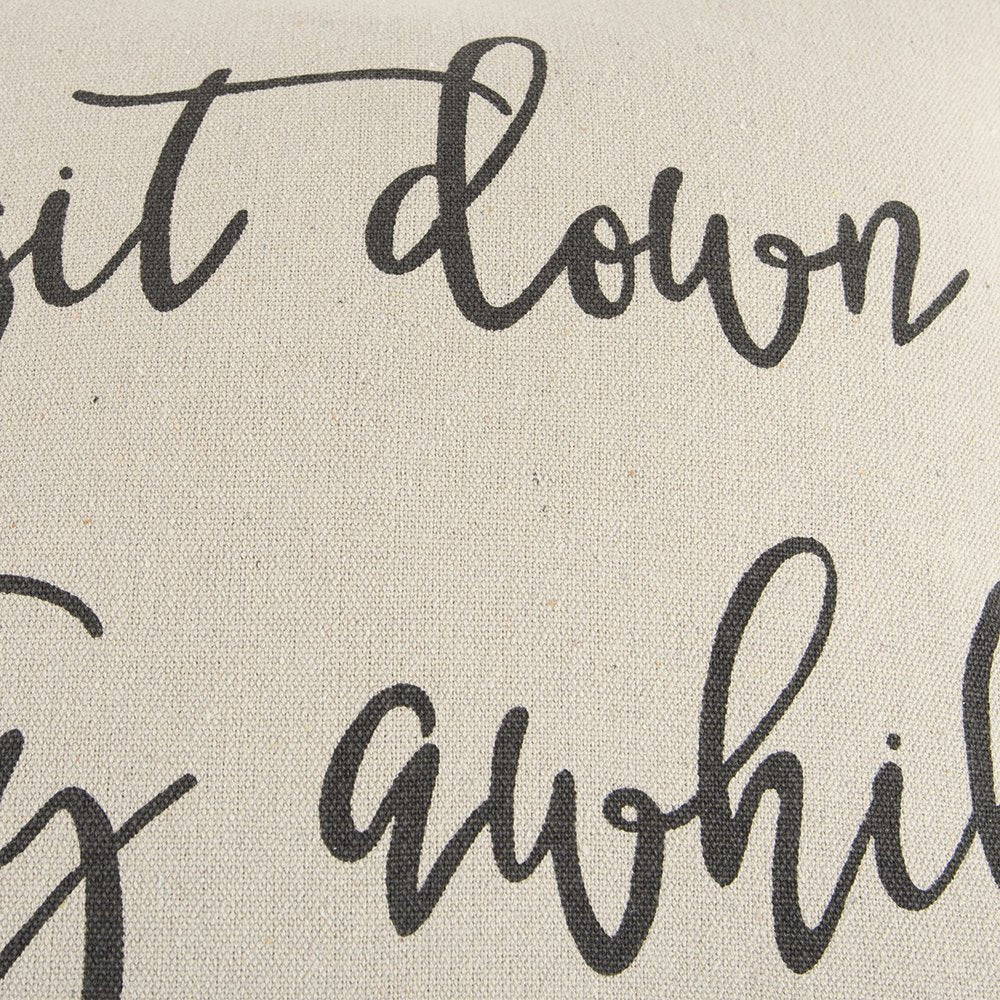 sit down
y awhil